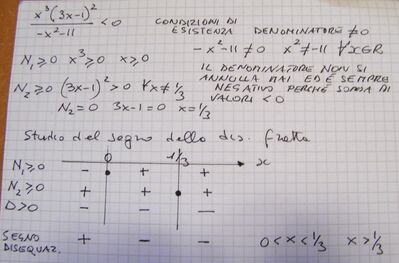 x³(3x-1)² / -x²-11 < 0
CONDIZIONI DI ESISTENZA DENOMINATORE ≠0
-x²-11≠0 x²≠-11 ∀x∈R
N₁≥0 x³≥0 x≥0
IL DENOMINATORE NON SI ANNULLA MAI ED È SEMPRE NEGATIVO PERCHÉ SOMMA DI VALORI <0
N₂≥0 (3x-1)²>0 ∀x≠1/3
N₂=0 3x-1=0 x=1/3
Studio del segno della dis. fratta
0 1/3 x
N₁≥0 - + +
N₂≥0 + + +
D>0 - - -
SEGNO DISEQUAZ. + - - 0<x<1/3 x>1/3